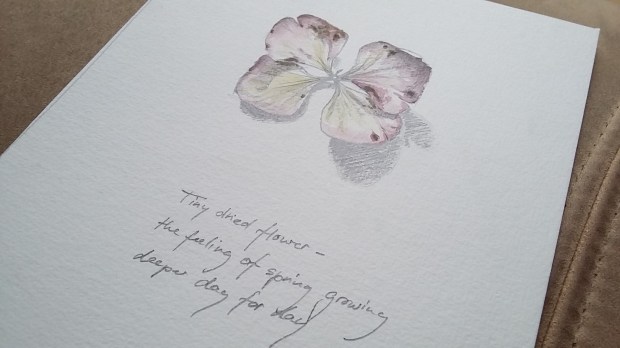 Tiny dried flower –
the feeling of spring growing
deeper day for day